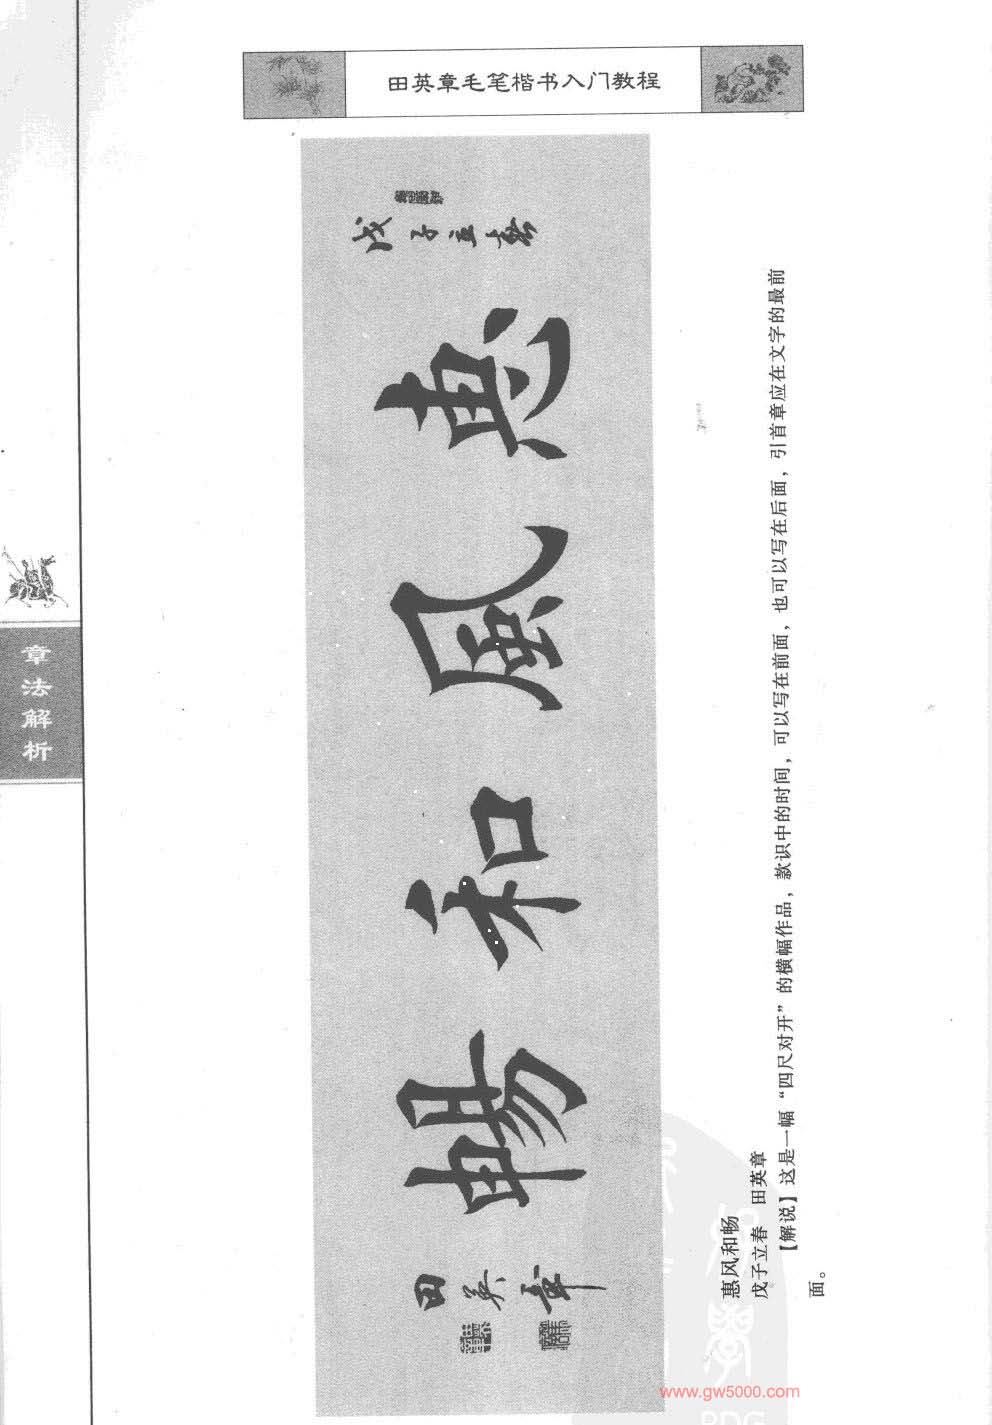 田英章毛笔楷书入门教程
章法解析
戊子立春
惠風和暢
田英章
惠风和畅
戊子立春　田英章
【解说】这是一幅“四尺对开”的横幅作品，款识中的时间，可以写在前面，也可以写在后面，引首章应在文字的最前
面。
www.gw5000.com
PDG